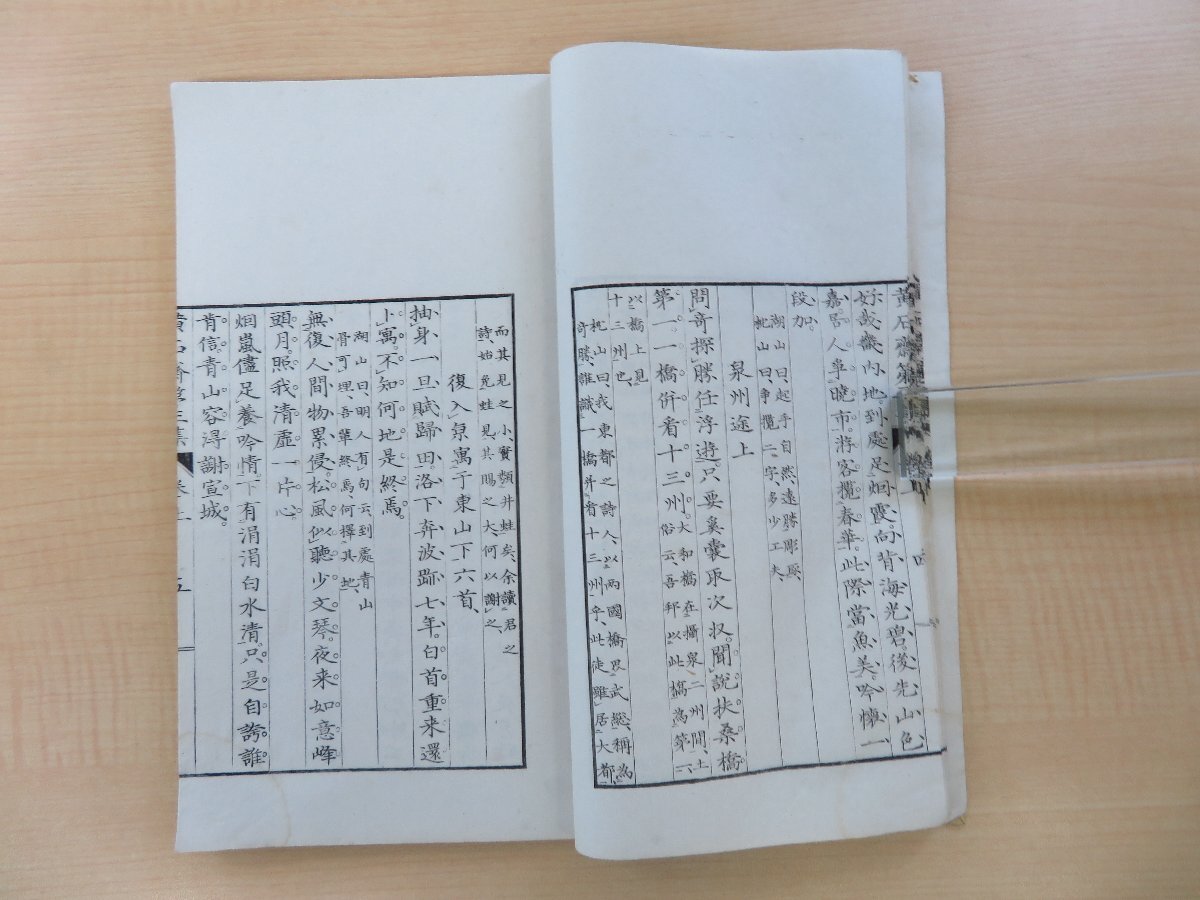 黄石齋第
好哉畿内地到處足烟霞向背海光碧後先山色
嘉居人阜曉市游客攬春華此際當魚美吟懷一
段加
湖山曰起手自然遠勝彫琢
枕山曰争攬二字多少工夫
泉州途上
問奇探勝任浮遊只要奚囊取次収聞說扶桑橋
第一一橋併看十三州大和橋在攝泉二州間土
俗云吾邦以此橋為第一
以橋上見
十三州也
枕山曰我東都之詩人以兩國橋畏武総稱為
奇勝誰識一橋并看十三州乎此徒雖居大都
而其見之小實類井蛙矣余讀君之
詩始免蛙見其賜之大何以謝之
復入京寓于東山下六首
抽身一旦賦歸田洛下奔波跡七年白首重来還
卜寓不知何地是終焉
湖山曰明人有句云到處青山
骨可埋吾輩終焉何擇其地
無復人間物累侵松風似聽少文琴夜来如意峰
頭月照我清虛一片心
烟嵐儘足養吟情下有涓涓白水清只是自誇誰
肯信青山容得謝宣城
黄石齋第三集 卷上 五